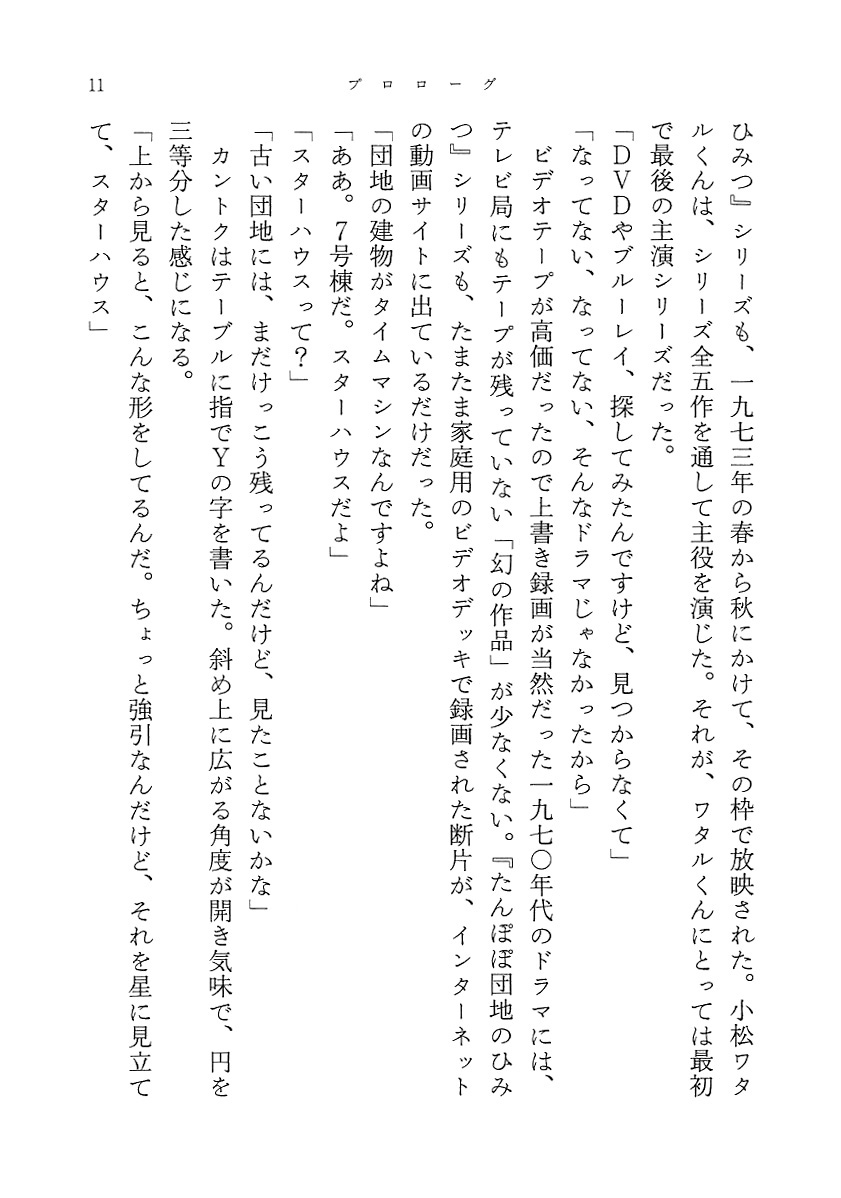 11
プロローグ
ひみつ』シリーズも、一九七三年の春から秋にかけて、その枠で放映された。小松ワタ
ルくんは、シリーズ全五作を通して主役を演じた。それが、ワタルくんにとっては最初
で最後の主演シリーズだった。
「ＤＶＤやブルーレイ、探してみたんですけど、見つからなくて」
「なってない、なってない、そんなドラマじゃなかったから」
　ビデオテープが高価だったので上書き録画が当然だった一九七〇年代のドラマには、
テレビ局にもテープが残っていない「幻の作品」が少なくない。『たんぽぽ団地のひみ
つ』シリーズも、たまたま家庭用のビデオデッキで録画された断片が、インターネット
の動画サイトに出ているだけだった。
「団地の建物がタイムマシンなんですよね」
「ああ。７号棟だ。スターハウスだよ」
「スターハウスって？」
「古い団地には、まだけっこう残ってるんだけど、見たことないかな」
　カントクはテーブルに指でＹの字を書いた。斜め上に広がる角度が開き気味で、円を
三等分した感じになる。
「上から見ると、こんな形をしてるんだ。ちょっと強引なんだけど、それを星に見立て
て、スターハウス」